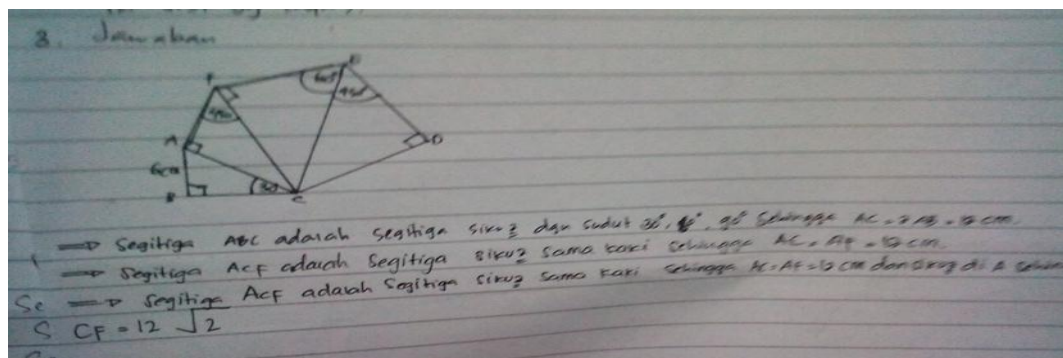 3. Jawaban
F
E
60°
45°
45°
A
D
6cm
30°
B
C
⇒ Segitiga ABC adalah segitiga siku2 dan sudut 30°, 60°, 90° sehingga AC = 2 AB = 12 cm
⇒ Segitiga ACF adalah segitiga siku2 sama kaki sehingga AC = AF = 12 cm.
Se ⇒ Segitiga ACF adalah segitiga siku2 sama kaki sehingga AC = AF = 12 cm dan siku2 di A
S CF = 12 √2